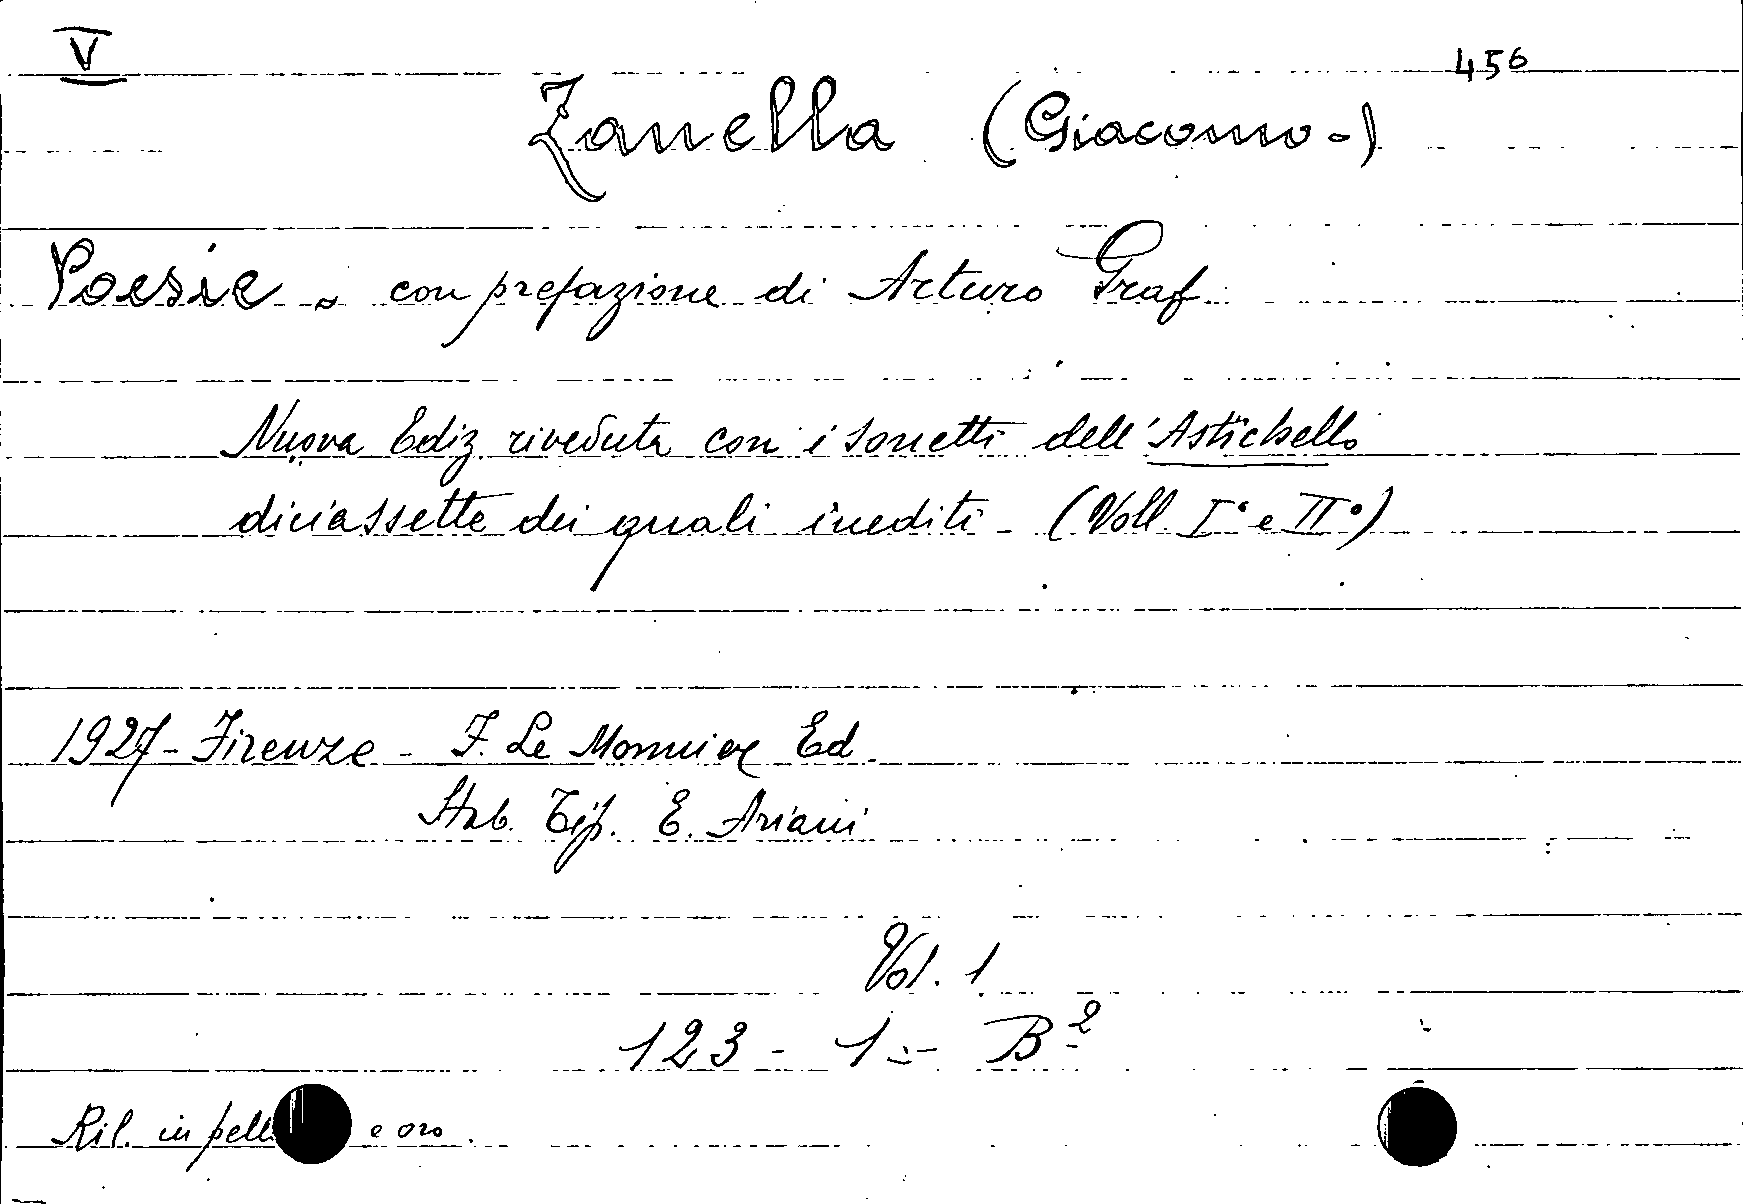 V 456
Zanella (Giacomo-)
Poesie - con prefazione di Arturo Graf
Nuova Ediz riveduta con i sonetti dell'Astichello
diciassette dei quali inediti - (Voll. I° e II°)
1927 - Firenze - F. Le Monnier Ed.
Stab. Tip. E. Ariani
Vol. 1
123 - 1 - B²
Ril. in pell e oro.